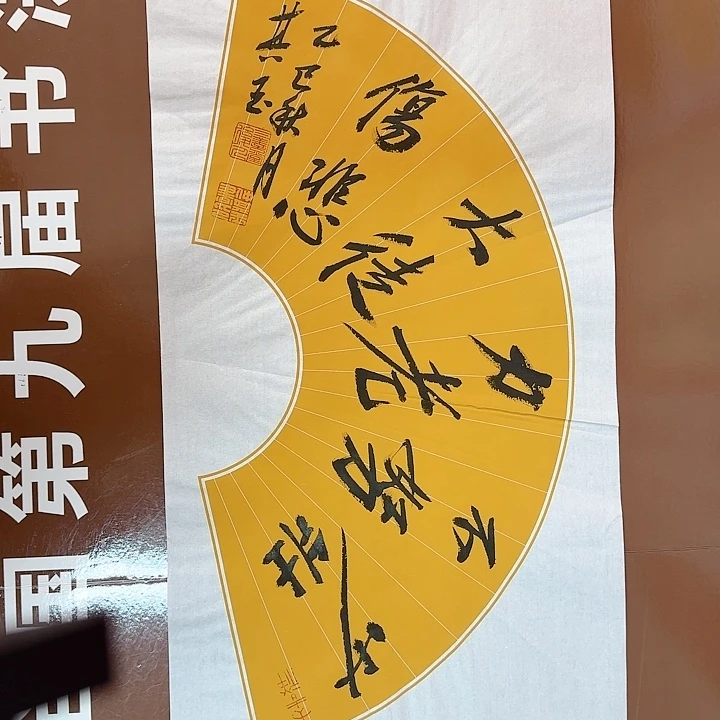 少壯
不努
力老
大徒
傷悲
乙巳秋月
其玉
国第九届书